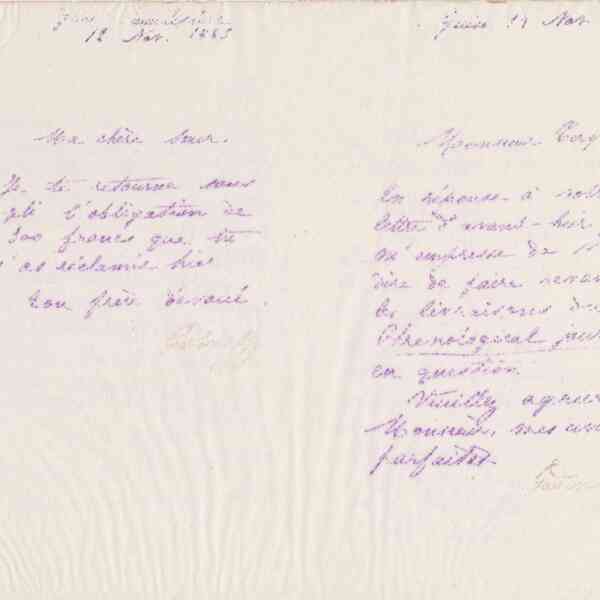 12 Nov. 1883
Ma chère Sœur.
Je te retourne sous
pli l'obligation de
500 francs que tu
m'as réclamée hier
Ton frère dévoué.
Guise 14 Nov.
Monsieur
En réponse à votre
lettre d'avant-hier je
m'empresse de
dire de faire
les livraisons du
Phrenological
en question.
Veuillez agréer
Monsieur, mes
parfaites